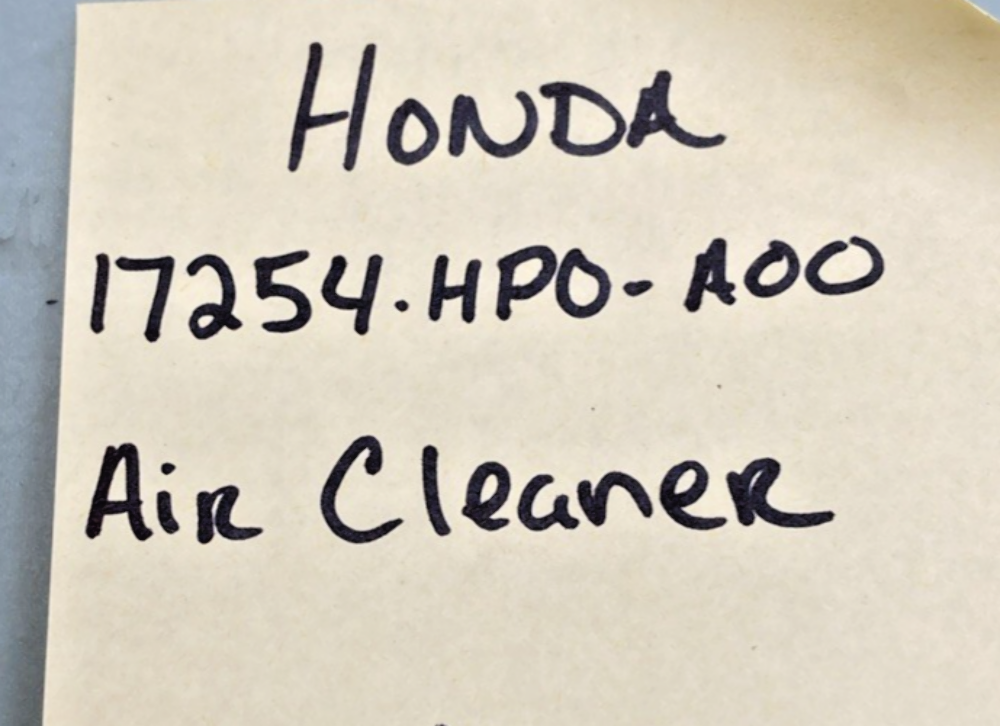 HONDA
17254-HPO-A00
Air Cleaner